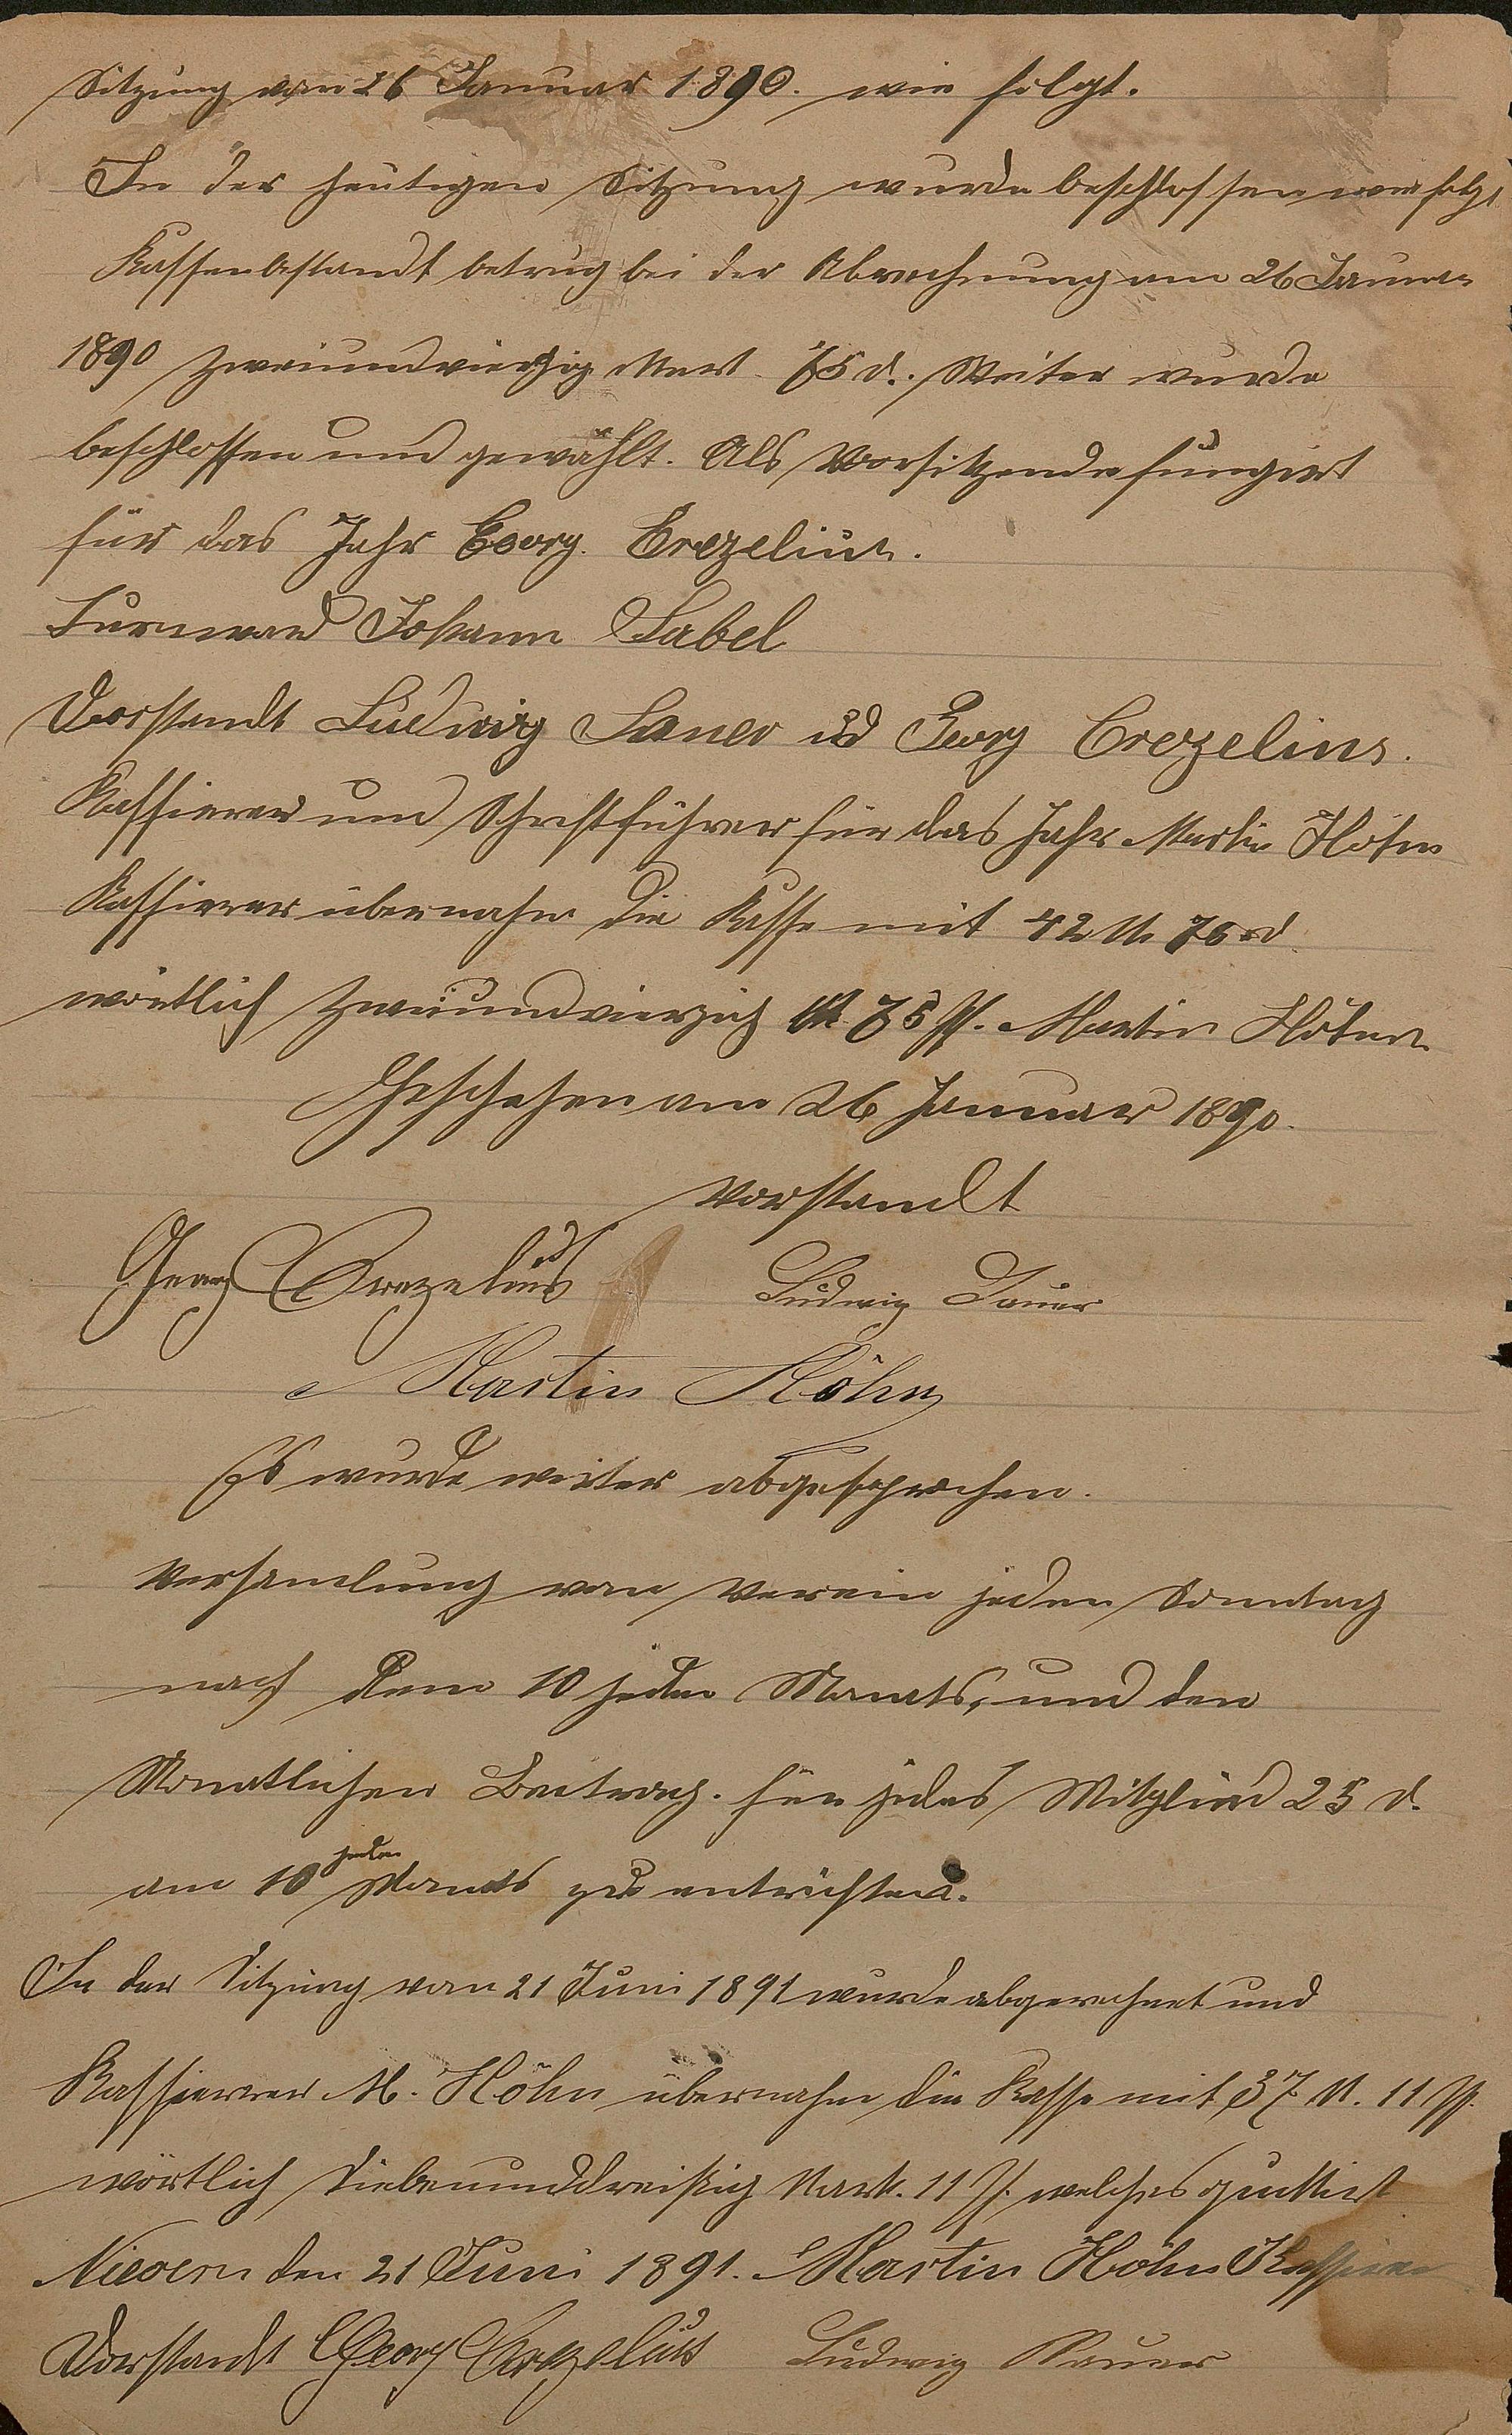 Sitzung vom 26 Januar 1890. wie folgt.
In der heutigen Sitzung wurde beschlossen wie folgt
Kassenbestandt betrug bei der Abrechnung am 26 Januar
1890 Zweiundvierzig Mark 75 d. Weiter wurde
beschlossen und gewählt. Als Vorsitzende fungirt
für das Jahr Georg Crezelius.
Turnward Johann Sabel
Vorstandt Ludwig Sauer ud Georg Crezelius.
Kassierer und Schriftführer für das Jahr Martin Höhn
Kassierer übernahm die Kasse mit 42 M 75 d
wörtlich Zweiundvierzig M 75 Pf. Martin Höhn
Geschehen am 26 Januar 1890.
Vorstandt
Georg Crezelius Ludwig Sauer
Martin Höhn
Es wurde weiter abgesprochen.
Versamlung vom Verein jeden Sonntag
nach dem 10 jeden Monats, und den
Monatlichen Beitrag. für jedes Mitglied 25 d.
am 10 jeden Monats zu entrichten.
In der Sitzung vom 21 Juni 1891 wurde abgerechnet und
Kassierrer M. Höhn übernahm die Kasse mit 37 M. 11 Pf.
wörtlich Siebenunddreißig Mark. 11 Pf. welches quittiert
Nievern den 21 Juni 1891. Martin Höhn Kassierer
Vorstandt Georg Crezelius Ludwig Sauer